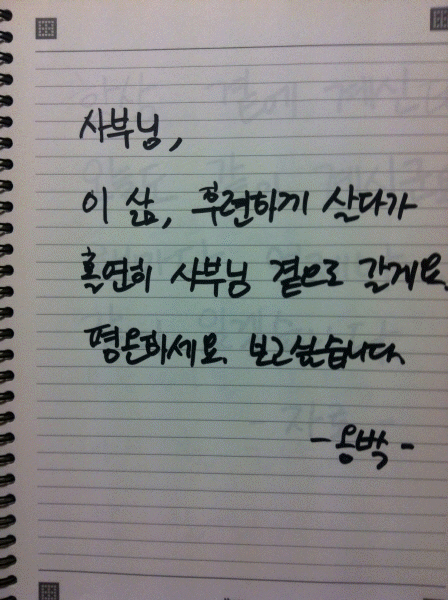 사부님,
이 삶, 후련하게 살다가
홀연히 사부님 곁으로 갈게요.
평온하세요. 보고싶습니다.
-옹박-